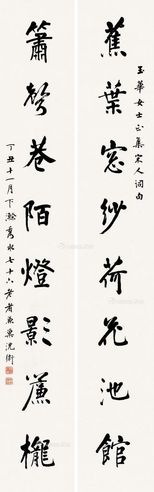 玉華女士正集宋人詞句
蕉葉窓紗荷花池館
簫聲巷陌燈影簾櫳
丁丑十一月下瀚秀水七十六老者兼巢沈衛